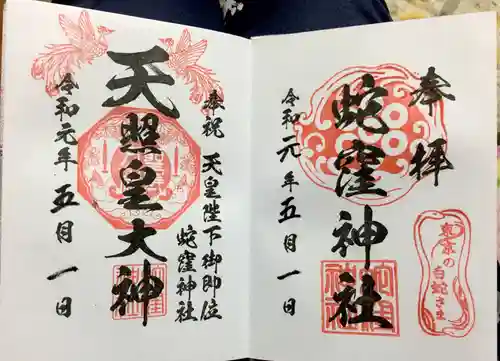 奉拝
蛇窪神社
令和元年五月一日
東京の
白蛇さま
奉祝 天皇陛下御即位
蛇窪神社
天照皇大神
令和元年五月一日